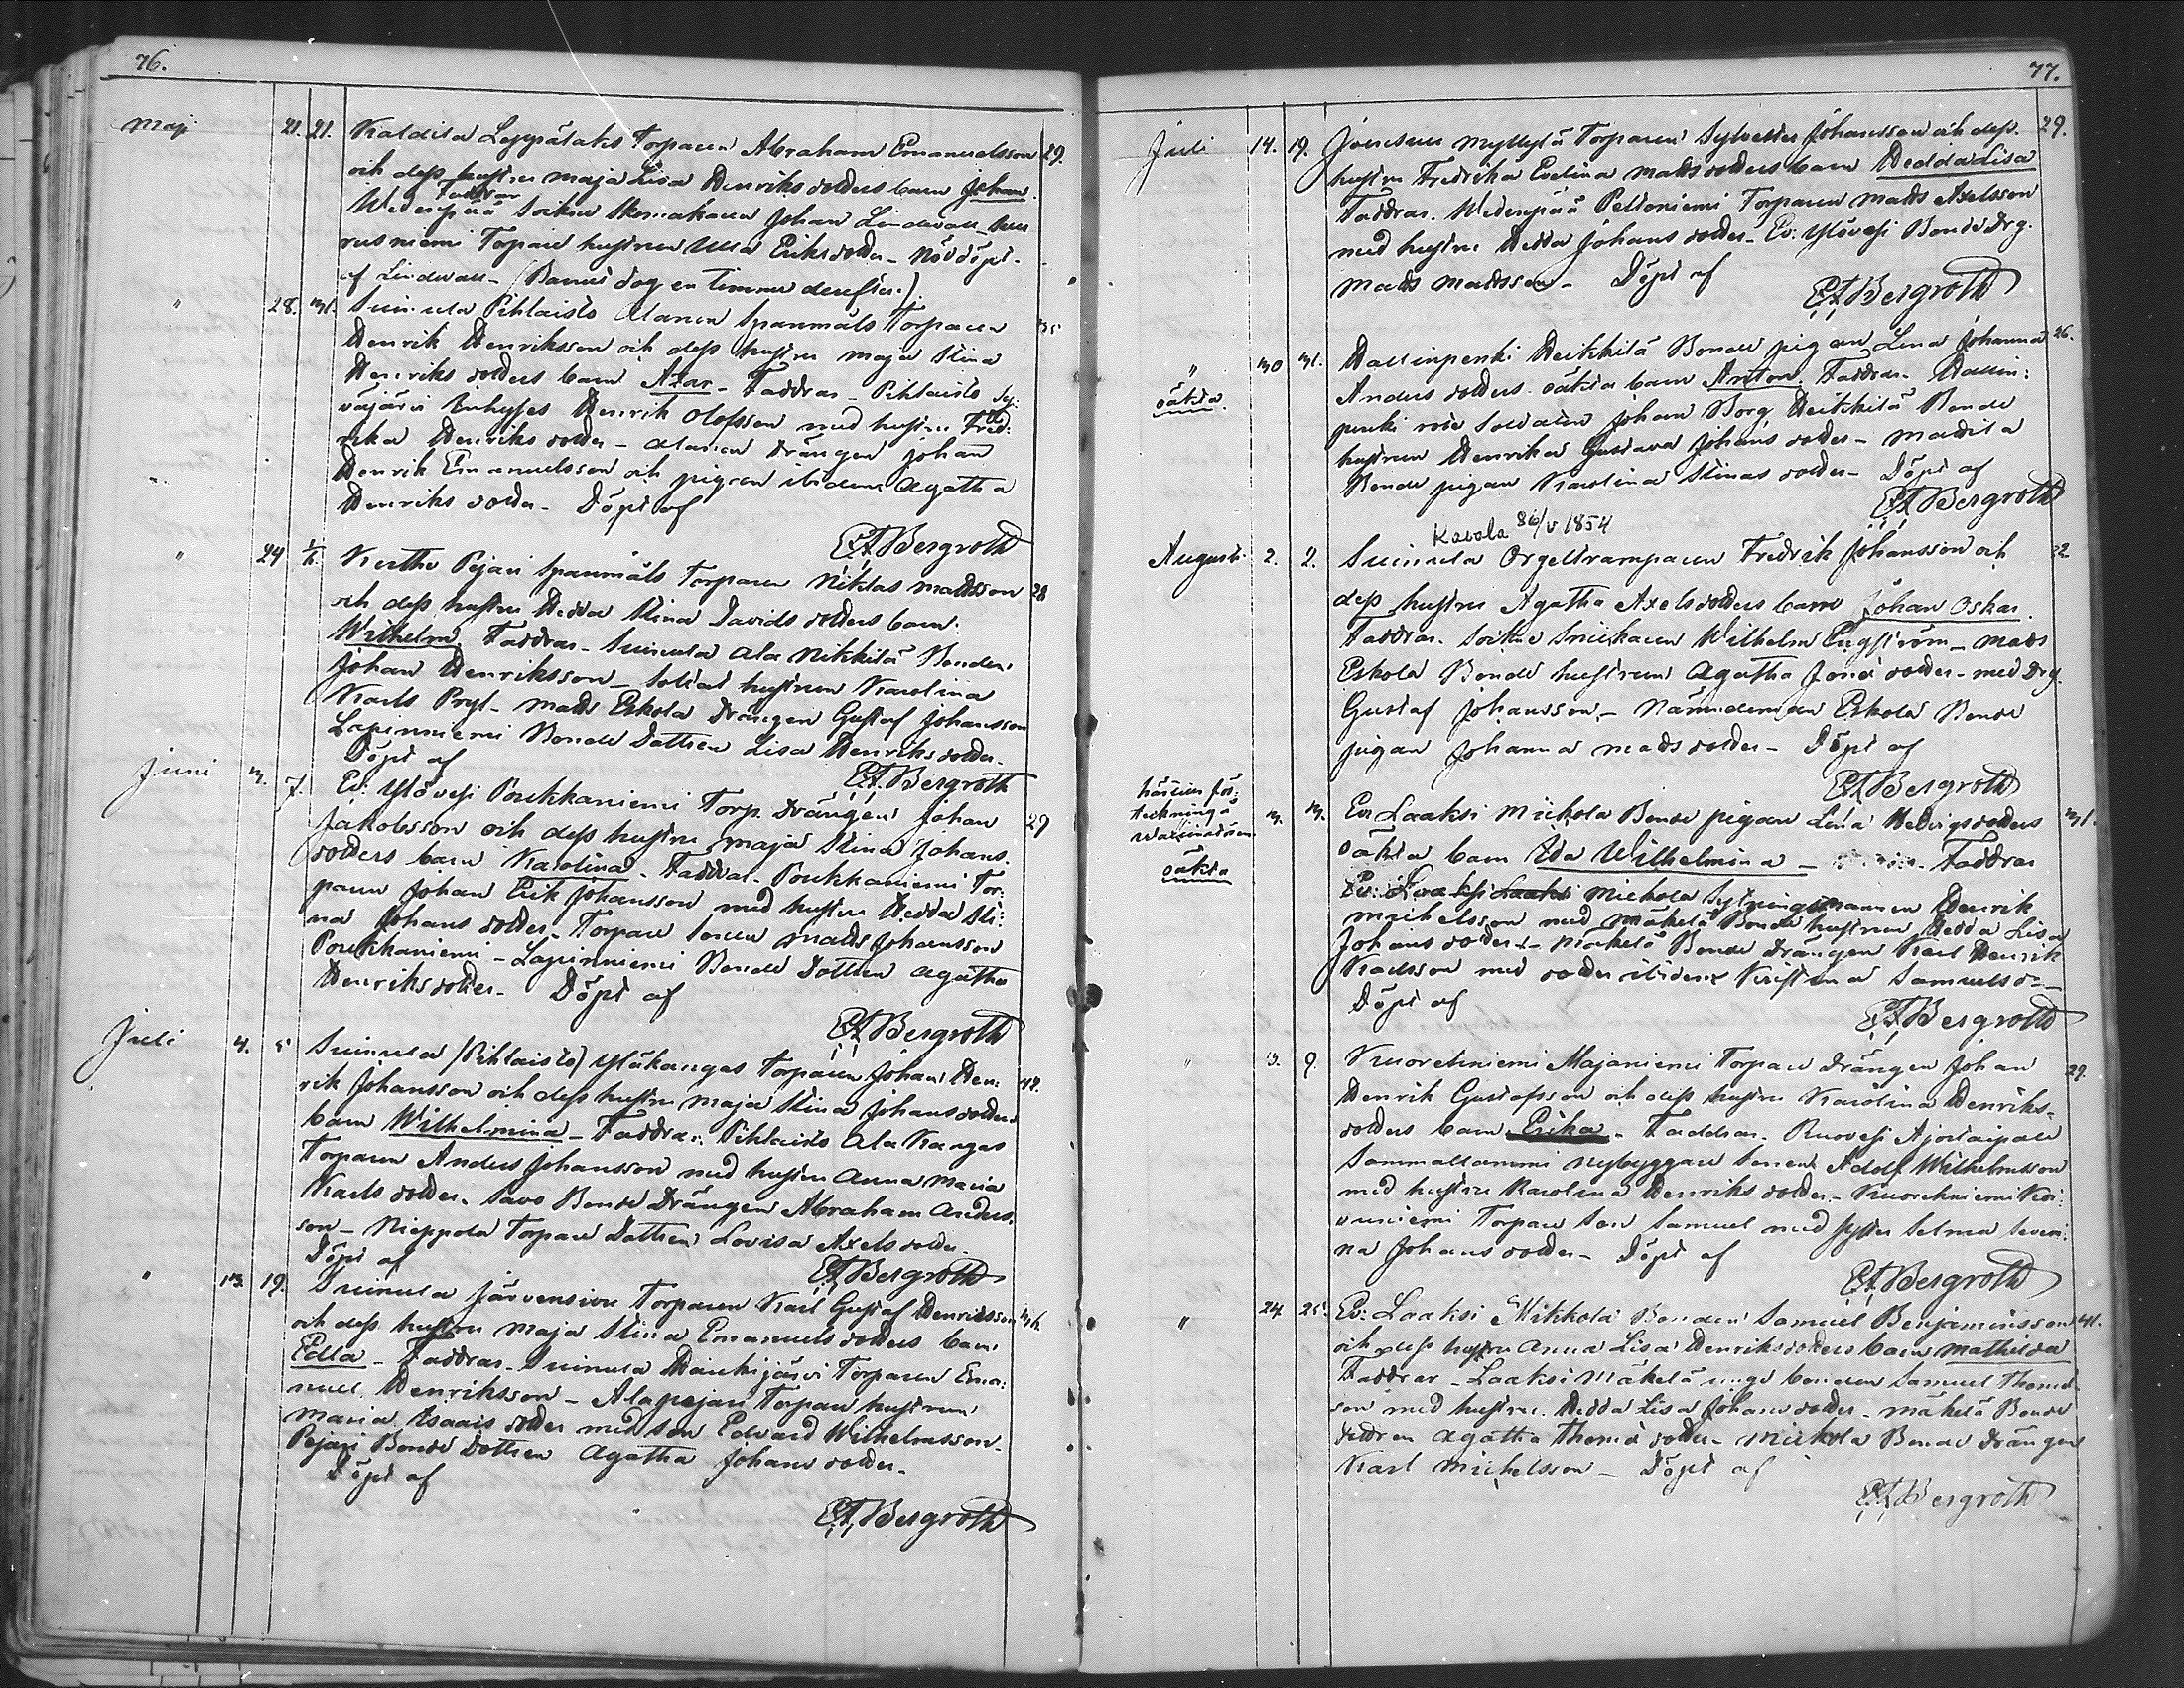 76.
Maj 21. 21. Kaldila Leppälaks Torparen Abraham Emanuelsson 29.
och dess hustru Maja Lisa Henriks dotters barn Johan.
Faddrar
Wedenpää Sockne Skomakaren Johan Lindwall
rusniemi Torpare hustrun Ulla Eriksdotter - Nöddöpt
af Lindwall - (Barnet dog en timme derefter.)
" 28. 31. Suinula Pihlaisto Alanen Spanmåls Torparen 35
Henrik Henriksson och dess hustru Maja Stina
Henriks dotters barn Azar - Faddrar - Pihlaisto Sy-
väjärvi Inhyses Henrik Olofsson med hustru Fred-
rika Henriks dotter - Alanen Drängen Johan
Henrik Emanuelsson och pigan ibidem Agatha
Henriks dotter - Döpt af
E.A. Bergroth
" 24 1/6. Kertte Pejari Spanmåls Torparen Niklas Mattsson 28
och dess hustru Hedda Stina Davids dotters barn
Wilhelm. Faddrar - Suinula Ala Nikkilä Bonden
Johan Henriksson - Soldat hustrun Karolina
Karls Pryl - Matts Eskola Drängen Gustaf Johansson
Lapinniemi Bonde Dottren Lisa Henriksdotter.
Döpt af
E.A. Bergroth
Juni 3. 7. Ev: Ylövesi Poukkaniemi Torp. Drängen Johan 29
Jakobsson och dess hustru Maja Stina Johans
dotters barn Karolina - Faddrar - Poukkaniemi Tor-
paren Johan Erik Johansson med hustru Hedda Sti-
na Johans dotter - Torpare Sonen Matts Johansson
Poukkaniemi - Lapinniemi Bonde Dottren Agatha
Henriksdotter - Döpt af
E.A. Bergroth
Juli 4. 5 Suinula (Pihlaisto) Yläkangas Torparen Johan Hen- 42.
rik Johansson och dess hustru Maja Stina Johansdotters
barn Wilhelmina - Faddrar: Pihlaisto Ala Kangas
Torparen Anders Johansson med hustru Anna Maria
Karls dotter. Savo Bonde Drängen Abraham Anders-
son - Nieppola Torpare Dottren Lovisa Axelsdotter.
Döpt af
E.A. Bergroth
" 13. 19. Suinula Järvensivu Torparen Karl Gustaf Henriksson 36.
och dess hustru Maja Stina Emanuels dotters barn
Edla - Faddrar - Suinula Haukijärvi Torparen Ema-
nuel Henriksson - Alapejari Torpare hustrun
Maria Isaais dotter med son Edvard Wilhelmsson.
Pejari Bonde Dottren Agatha Johans dotter.
Döpt af
E.A. Bergroth
77.
Juli 14. 19. Jouensuu Myllylä Torparen Sylvester Johansson och dess 29.
hustru Fredrika Evelina Mattsdotters barn Hedda Lisa
Faddrar. Wedenpää Peltoniemi Torparen Matts Axelsson
med hustru Hedda Johans dotter - Ev: Ylövesi Bonde Drg.
Matts Mattsson - Döpt af
E.A. Bergroth
" 30 31. Hallinpenki Heikkilä Bonde pigan Lena Johanna 26.
oäkta. Anders dotters oäkta barn Anton. Faddrar - Hallin-
penki rote Soldaten Johan Borg Heikkilä Bonde
hustrun Henrika Gustava Johans dotter - Mattila
Bonde pigan Karolina Stinas dotter - Döpt af
E.A. Bergroth
Kavala 86/v 1854
Augusti 2. 2. Suinula Orgeltramparen Fredrik Johansson och 32
dess hustru Agatha Axelsdotters barn Johan Oskar.
Faddrar. Sockne Snickaren Wilhelm Engström - Matts
Eskola Bonde hustrun Agatha Jonæ dotter - med Drg.
Gustaf Johansson - Nämndeman Eskola Bonde
pigan Johanna Matts dotter - Döpt af
E.A. Bergroth
oäkta 3. 3. Ev: Laaksi Mickola Bonde pigan Lena Hedvigsdotters 31.
oäkta barn Ida Wilhelmina - Faddrar
Ev: Laaksi Laaksi Mickola Sytningsmannen Henrik
Michelsson med Mäkelä Bonde hustrun Hedda Lisa
Johans dotter - Mäkelä Bonde Drängen Karl Henrik
Karlsson med dotter ibidem Kristina Samuelsd.
Döpt af
E.A. Bergroth
" 3. 9. Kuorehniemi Majaniemi Torpare Drängen Johan 29.
Henrik Gustafsson och dess hustru Karolina Henriks-
dotters barn Erika - Faddrar. Ruovesi Ajostaipale
Sammallammi nybyggare Sonen Adolf Wilhelmsson
med hustru Karolina Henriks dotter - Kuorehniemi Koi-
vuniemi Torpare Son Samuel med syster Selma Severi-
na Johans dotter - Döpt af
E.A. Bergroth
" 24 25. Ev: Laaksi Mikkola Bonden Samuel Benjaminsson 41.
och dess hustru Anna Lisa Henriksdotters barn Mathilda
Faddrar - Laaksi Mäkelä unge bonden Samuel Thomæ-
son med hustru Hedda Lisa Johans dotter - Mäkelä Bonde
dottren Agatha Thomæ dotter - Mickola Bonde Drängen
Karl Michelsson - Döpt af
E.A. Bergroth